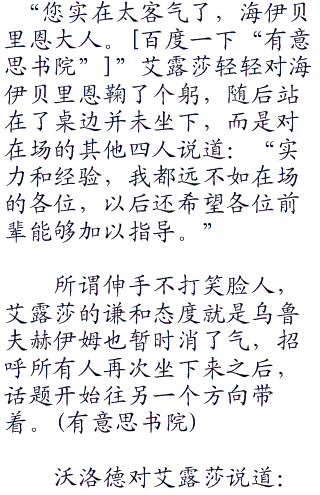 “您实在太客气了，海伊贝
里恩大人。[百度一下“有意
思书院”]”艾露莎轻轻对海
伊贝里恩鞠了个躬，随后站
在了桌边并未坐下，而是对
在场的其他四人说道：“实
力和经验，我都远不如在场
的各位，以后还希望各位前
辈能够加以指导。”
所谓伸手不打笑脸人，
艾露莎的谦和态度就是乌鲁
夫赫伊姆也暂时消了气，招
呼所有人再次坐下来之后，
话题开始往另一个方向带
着。(有意思书院)
沃洛德对艾露莎说道：